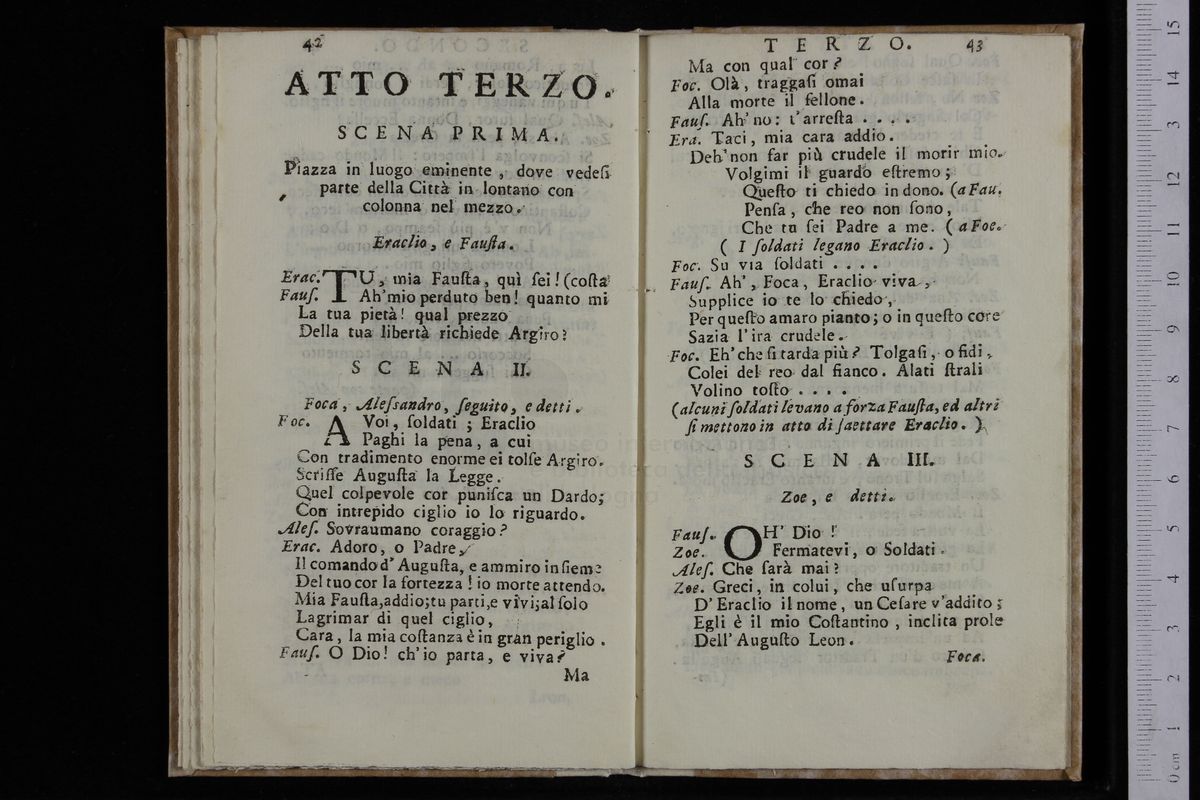 42
ATTO TERZO.
SCENA PRIMA.
Piazza in luogo eminente, dove vedeſi
parte della Città in lontano con
colonna nel mezzo.
Eraclio, e Fauſta.
Erac. TU, mia Fauſta, quì ſei! (coſta
Fauſ. Ah' mio perduto ben! quanto mi
La tua pietà! qual prezzo
Della tua libertà richiede Argiro?
SCENA II.
Foca, Aleſsandro, ſeguito, e detti.
Foc. A Voi, ſoldati; Eraclio
Paghi la pena, a cui
Con tradimento enorme ei tolſe Argiro.
Scriſſe Auguſta la Legge.
Quel colpevole cor puniſca un Dardo;
Con intrepido ciglio io lo riguardo.
Aleſ. Sovraumano coraggio?
Erac. Adoro, o Padre,
Il comando d' Auguſta, e ammiro inſieme
Del tuo cor la fortezza! io morte attendo.
Mia Fauſta, addio; tu parti, e vivi; al ſolo
Lagrimar di quel ciglio,
Cara, la mia coſtanza è in gran periglio.
Fauſ. O Dio! ch' io parta, e viva?
Ma
TERZO. 43
Ma con qual cor?
Foc. Olà, traggaſi omai
Alla morte il fellone.
Fauſ. Ah' no: t'arreſta . . . .
Era. Taci, mia cara addio.
Deh' non far più crudele il morir mio.
Volgimi il guardo eſtremo;
Queſto ti chiedo in dono. (a Fau.
Penſa, che reo non ſono,
Che tu ſei Padre a me. (a Foc.
( I ſoldati legano Eraclio. )
Foc. Su via ſoldati . . . .
Fauſ. Ah', Foca, Eraclio viva,
Supplice io te lo chiedo,
Per queſto amaro pianto; o in queſto core
Sazia l'ira crudele.
Foc. Eh' che ſi tarda più? Tolgaſi, o fidi,
Colei del reo dal fianco. Alati ſtrali
Volino toſto . . . .
(alcuni ſoldati levano a forza Fauſta, ed altri
ſi mettono in atto di ſaettare Eraclio. )
SCENA III.
Zoe, e detti.
Fauſ. OH' Dio!
Zoe. Fermatevi, o Soldati.
Aleſ. Che ſarà mai?
Zoe. Greci, in colui, che uſurpa
D' Eraclio il nome, un Ceſare v'addito;
Egli è il mio Coſtantino, inclita prole
Dell' Auguſto Leon.
Foca.